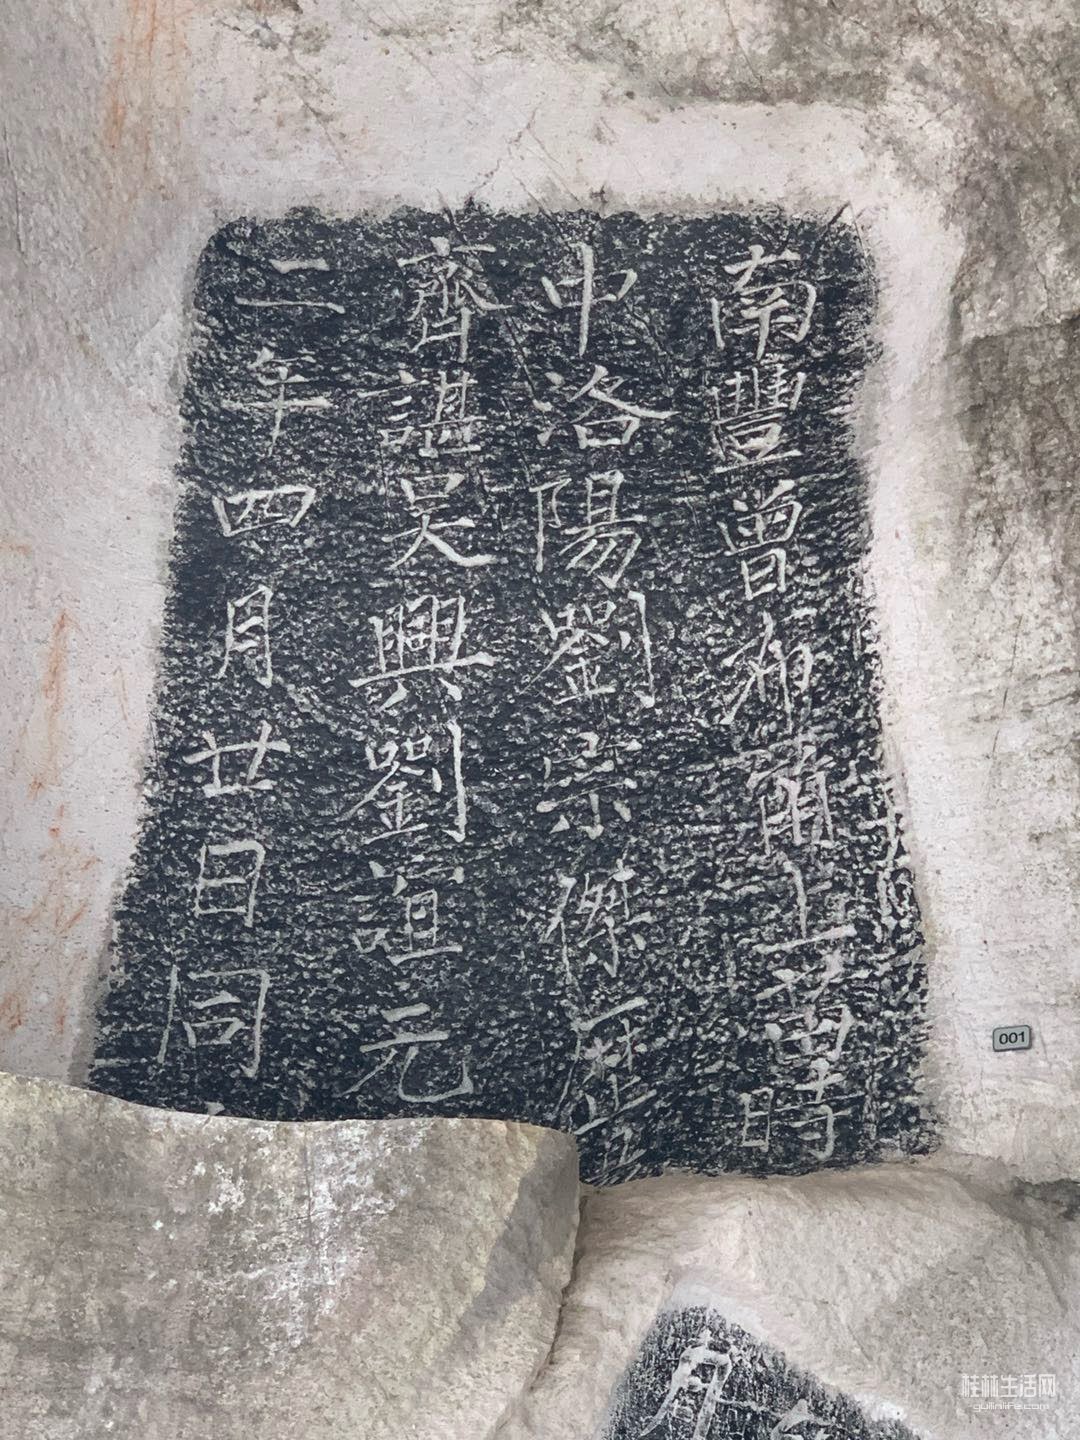 南豐曾布上苗時
中洛陽劉宗傑
齊諶吳興劉誼元
二年四月廿日同
001
桂林生活网
guilinlife.com